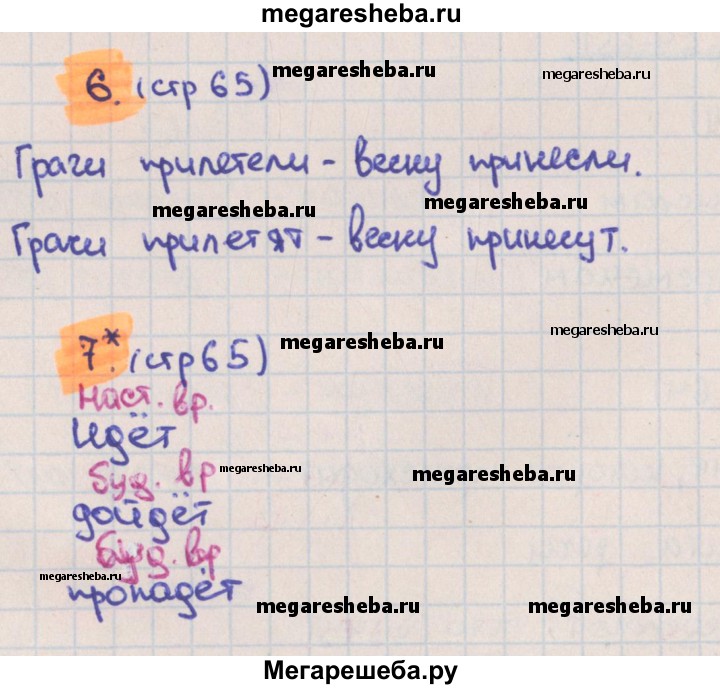 megaresheba.ru
6. (стр 65)
megaresheba.ru
megaresheba.ru
Грачи прилетели - весну принесли.
megaresheba.ru
megaresheba.ru
Грачи прилетят - весну принесут.
megaresheba.ru
7*. (стр 65)
megaresheba.ru
Наст. вр.
Идёт
буд. вр
megaresheba.ru
megaresheba.ru
дойдёт
буд. вр
megaresheba.ru
пропадёт
megaresheba.ru
megaresheba.ru
Мегарешеба.ру